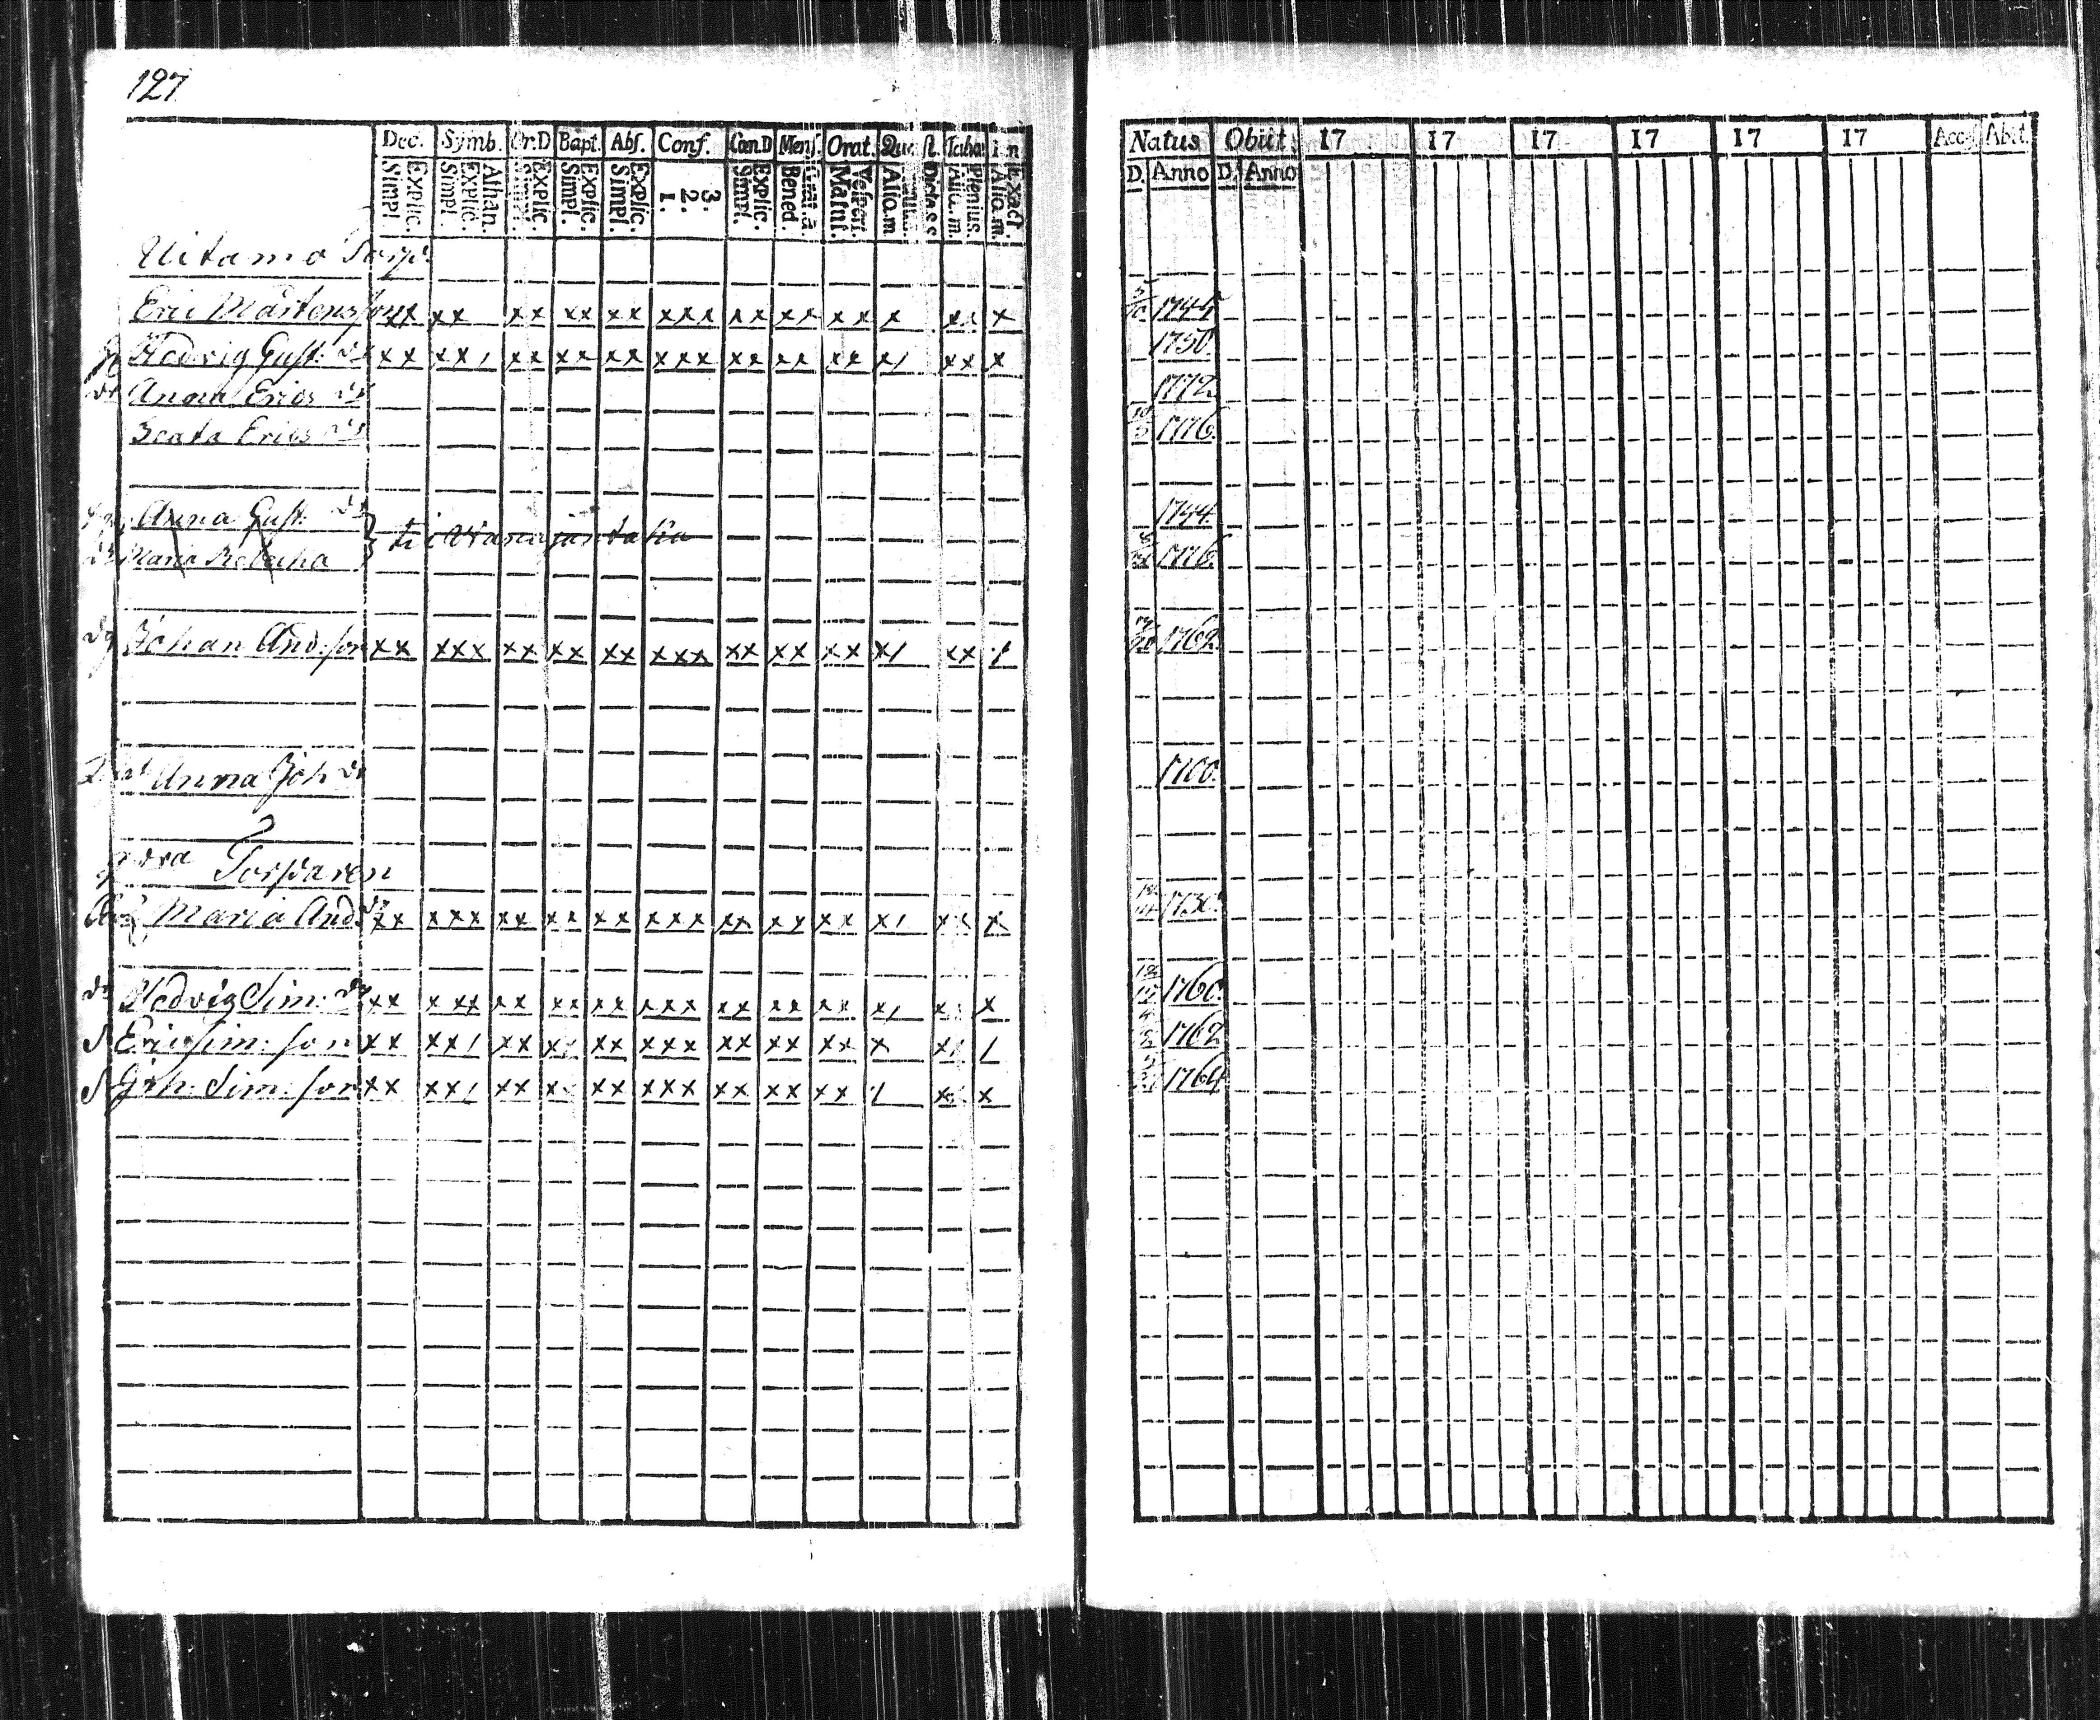 127
Dec. Symb. Or.D Bapt. Abs. Conf. Can.D Mens. Orat. Quæ st. Taba in
Explic. Simpl. Athan. Explic. Simpl. Explic. Explic. Simpl. Explic. Simpl. 3. 2. 1. Explic. Simpl. Bened. Vesperi. Matut. Alio.m. Dict.s.s Plenius. Alio.m. Exact Alio.m.
Natus Obiit 17 17 17 17 17 17 Acc. Abit.
D. Anno D. Anno
Uitamo Torp.
Eric Mårtensson xx xx xx xx xx xxx xx xx xx x xx x 1744
Hedvig Gust. dr xx xx/ xx xx xx xxx xx xx xx x/ xx x 1750
dr Anna Erics dr 1772
Beata Erics dr 1776
Anna Gust. dr 1744
Maria Rebecka 1776
Johan And. son xx xxx xx xx xx xxx xx xx xx x/ xx / 1762
Anna Joh dr 1700
Torparen
Maria And. dr xx xxx xx xx xx xxx xx xx xx x/ xx x 1730
dr Hedvig Sim. dr xx xxx xx xx xx xxx xx xx xx x/ x 1760
S Eric Sim. son xx xx/ xx xx xx xxx xx xx xx x x/ / 1762
S Joh. Sim. son xx xx/ xx xx xx xxx xx xx xx / x x 1764